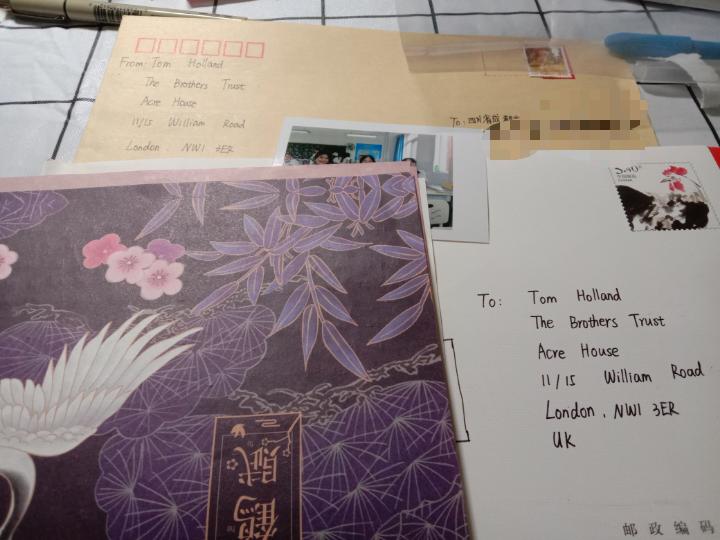 From: Tom Holland
The Brothers Trust
Acre House
11/15 William Road
London, NW1 3ER
To: 四川省成都市
To: Tom Holland
The Brothers Trust
Acre House
11/15 William Road
London, NW1 3ER
UK
邮政编码